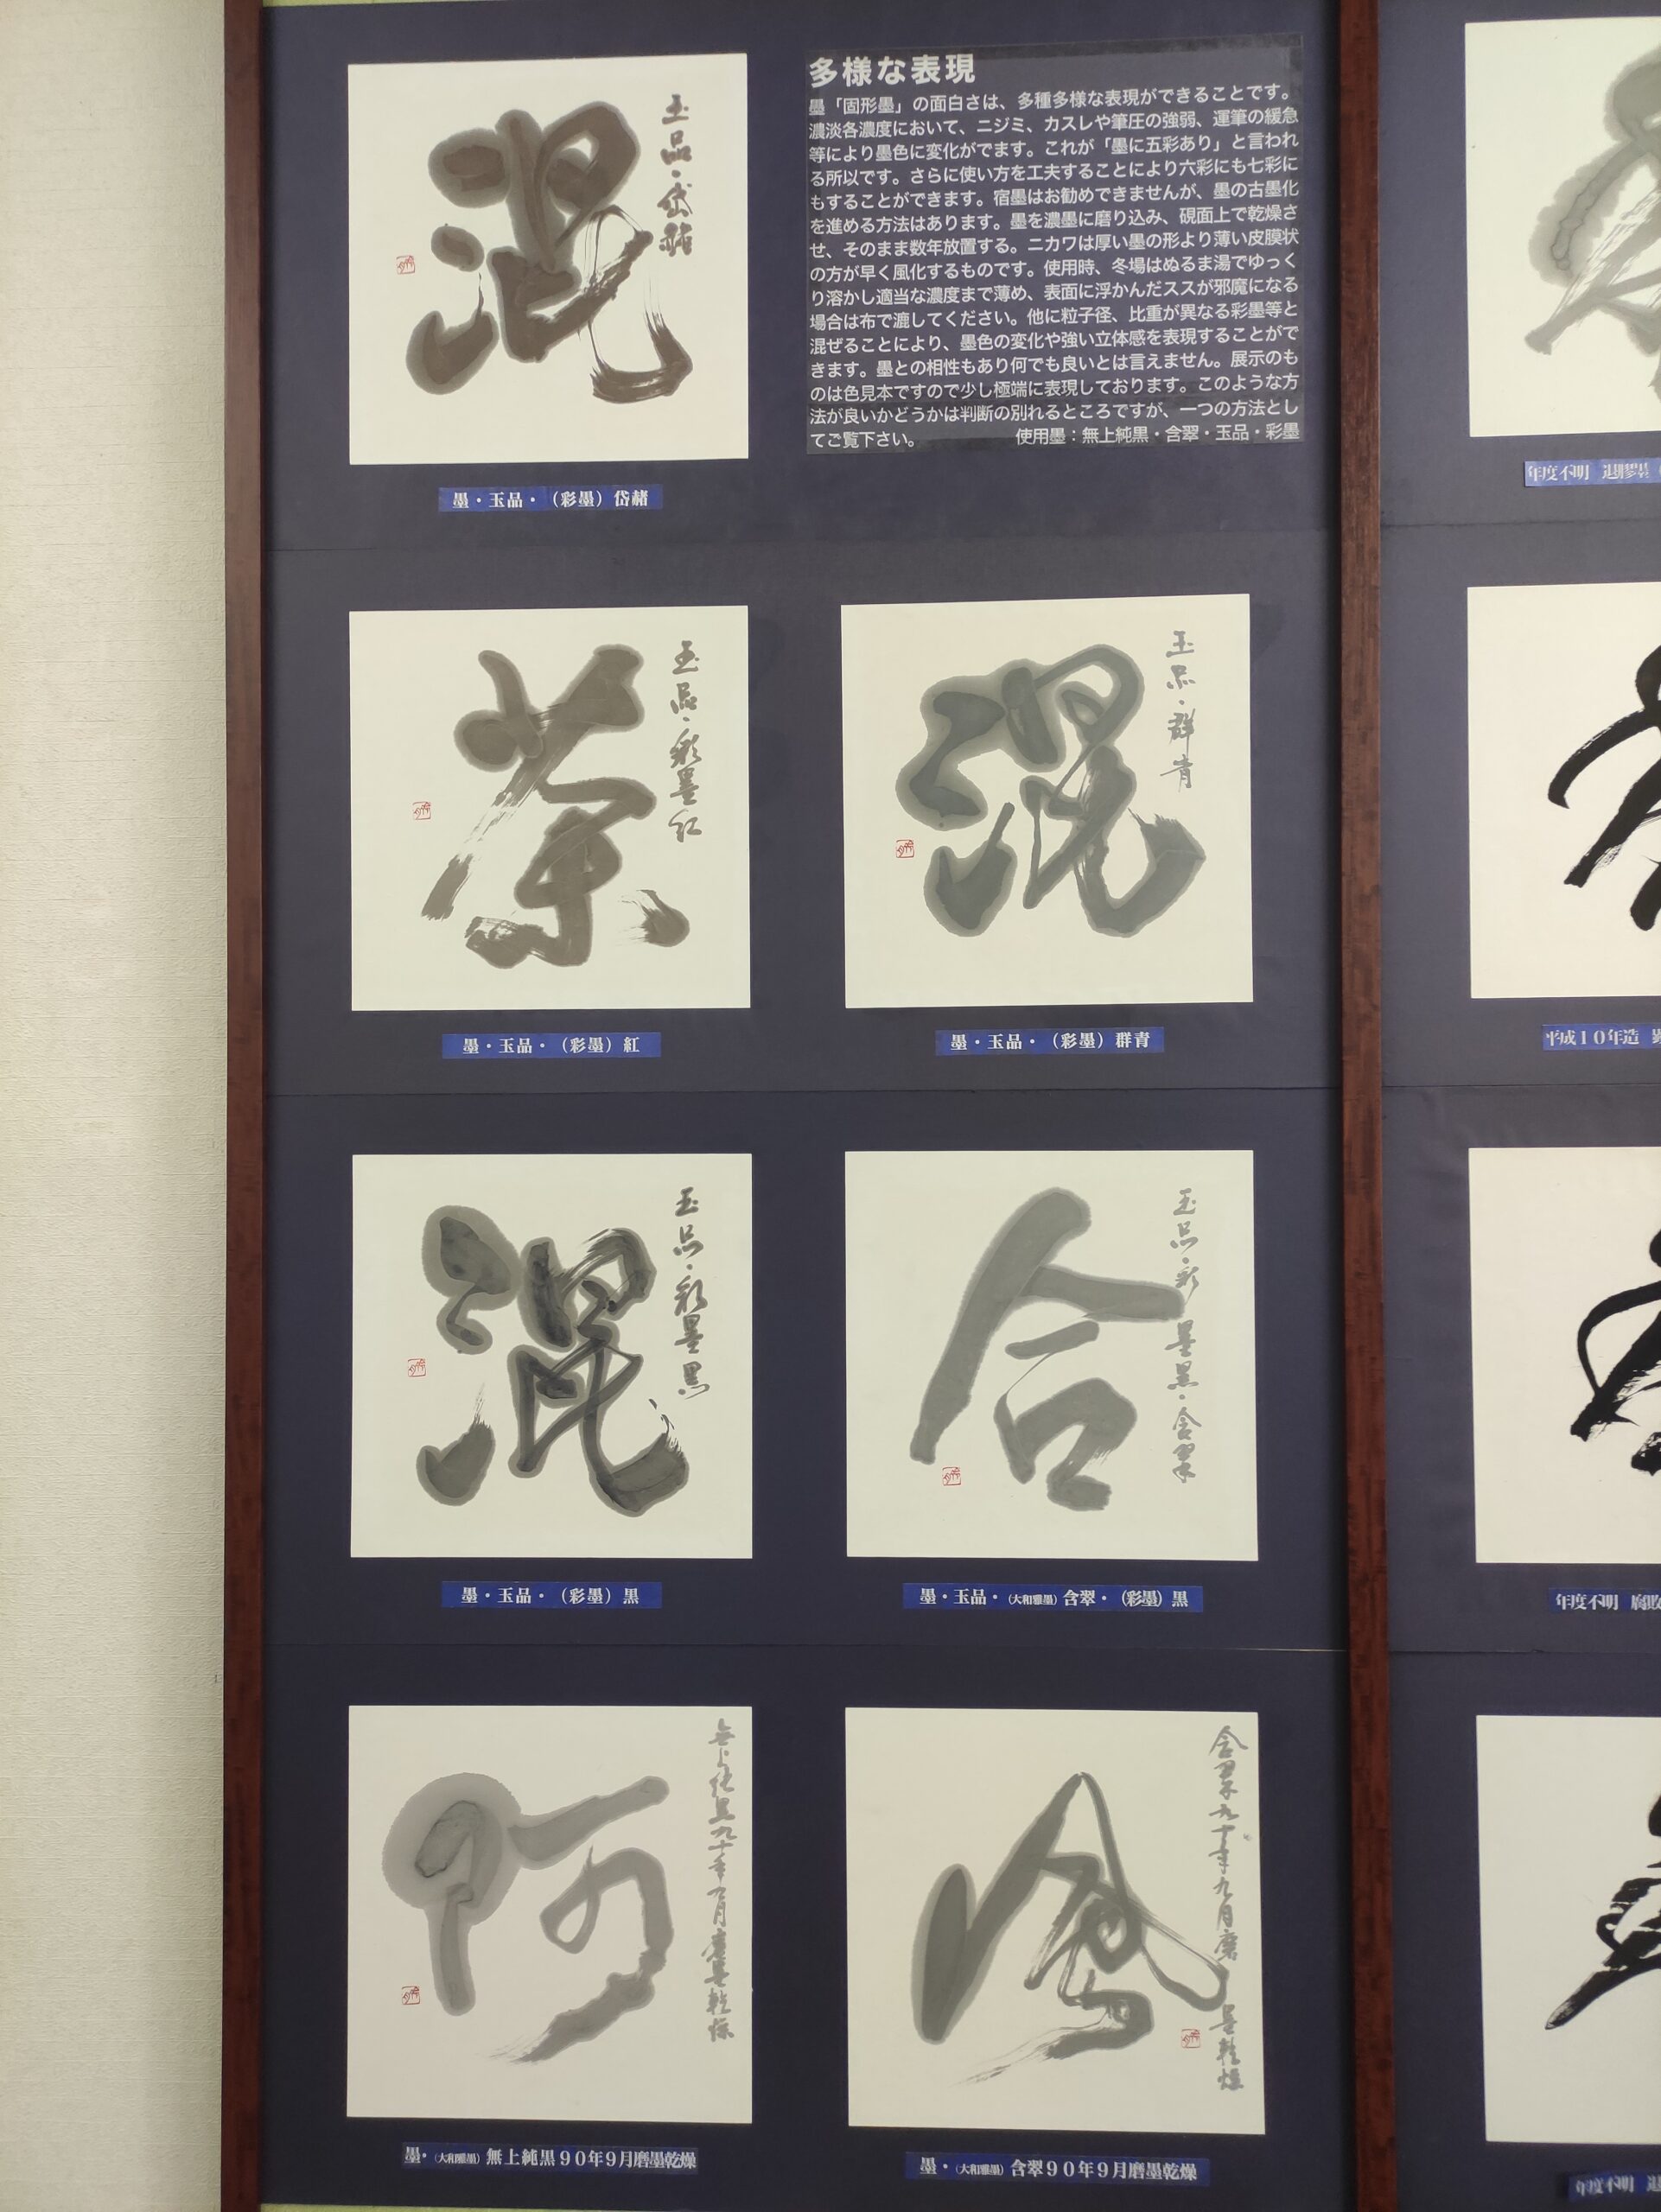 混
玉品・岱赭
墨・玉品・（彩墨）岱赭
多様な表現
墨「固形墨」の面白さは、多種多様な表現ができることです。
濃淡各濃度において、ニジミ、カスレや筆圧の強弱、運筆の緩急
等により墨色に変化がでます。これが「墨に五彩あり」と言われ
る所以です。さらに使い方を工夫することにより六彩にも七彩に
もすることができます。宿墨はお勧めできませんが、墨の古墨化
を進める方法はあります。墨を濃墨に磨り込み、硯面上で乾燥さ
せ、そのまま数年放置する。ニカワは厚い墨の形より薄い皮膜状
の方が早く風化するものです。使用時、冬場はぬるま湯でゆっく
り溶かし適当な濃度まで薄め、表面に浮かんだススが邪魔になる
場合は布で漉してください。他に粒子径、比重が異なる彩墨等と
混ぜることにより、墨色の変化や強い立体感を表現することがで
きます。墨との相性もあり何でも良いとは言えません。展示のも
のは色見本ですので少し極端に表現しております。このような方
法が良いかどうかは判断の別れるところですが、一つの方法とし
てご覧下さい。　使用墨：無上純黒・含翠・玉品・彩墨
年度不明
茶
玉品・彩墨紅
墨・玉品・（彩墨）紅
混
玉品・群青
墨・玉品・（彩墨）群青
平成１０年造
混
玉品・彩墨黒
墨・玉品・（彩墨）黒
合
玉品・彩墨黒・含翠
墨・玉品・（大和雅墨）含翠・（彩墨）黒
年度不明 腐敗
阿
無上純黒九十年九月磨墨乾燥
墨・（大和雅墨）無上純黒９０年９月磨墨乾燥
含翠九十年九月磨墨乾燥
墨・（大和雅墨）含翠９０年９月磨墨乾燥
年度不明